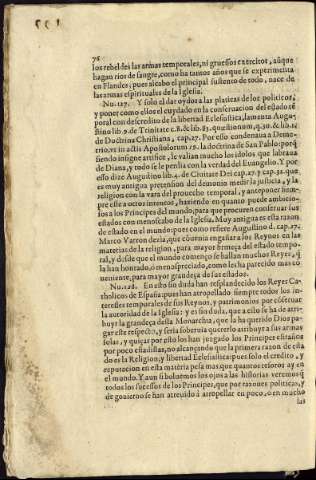 76
los rebeldes las armas temporales, ni gruessos exercitos, aũque
hagan rios de sangre, como ha tantos años que se experimenta
en Flandes; pues al cabo el principal sustento de todo, nace de
las armas espirituales de la Iglesia.
Nu. 127. Y solo el dar oydos a las platicas de los politicos,
y poner como ellos el cuydado en la conseruacion del estado tẽ
poral con descredito de la libertad Eclesiastica, lamenta Augus-
tino lib. 9. de Trinitate c. 8. & lib. 83. quæstionum, q. 30. & lib. 1.
de Doctrina Christiana, cap. 27. Por esso condenaua a Deme-
trio, vt in actis Apostolorum 19. la doctrina de San Pablo: porq̃
siendo insigne artifice, le valian mucho los idolos que labraua
de Diana, y todo se le perdia con la verdad del Euangelio. Y por
esso dize Augustino lib. 4. de Ciuitate Dei cap. 27. y cap. 32. que
es muy antigua pretension del demonio medir la justicia, y la
religion con la vara del prouecho temporal, y anteponer siem-
pre este a otros intentos, haziendo en quanto puede ambicio-
sos a los Principes del mundo, para que procuren conseruar sus
estados con menoscabo de la Iglesia. Muy antigua es esta razon
de estado en el mundo: pues como refiere Augustino d. cap. 27.
Marco Varron dezia, que cõuenia engañar a los Reynos en las
materias de la religion, para mayor firmeza del estado tempo-
ral, y desde que el mundo començo se hallan muchos Reyes, q̃
la han honrado, o menospreciado, como les ha parecido mas cõ
ueniente, para mayor grandeza de sus estados.
Nu. 128. En esto sin duda han resplandecido los Reyes Ca-
tholicos de España, pues han atropellado siempre todos los in-
teresses temporales de sus Reynos, y patrimonios por cõseruar
la autoridad de la Iglesia: y es sin duda, que a ello se ha de atri-
buyr la grandeça desta Monarchia, que la ha querido Dios pa-
gar este respecto, y seria soberuia quererlo atribuyr a sus armas
solas, y quiças por esto los han juzgado los Principes estraños
por poco estadistas, no alcançando que la primera razon de esta
do es la Religion, y libertad Eclesiastica: pues solo el credito, y
reputacion en esta materia pesa mas que quantos tesoros ay en
el mundo. Y aun si boluemos los ojos a las historias veremos q̃
todos los sucessos de los Principes, que por razones politicas, y
de gouierno se han atreuido a atropellar en poco, o en mucho
las